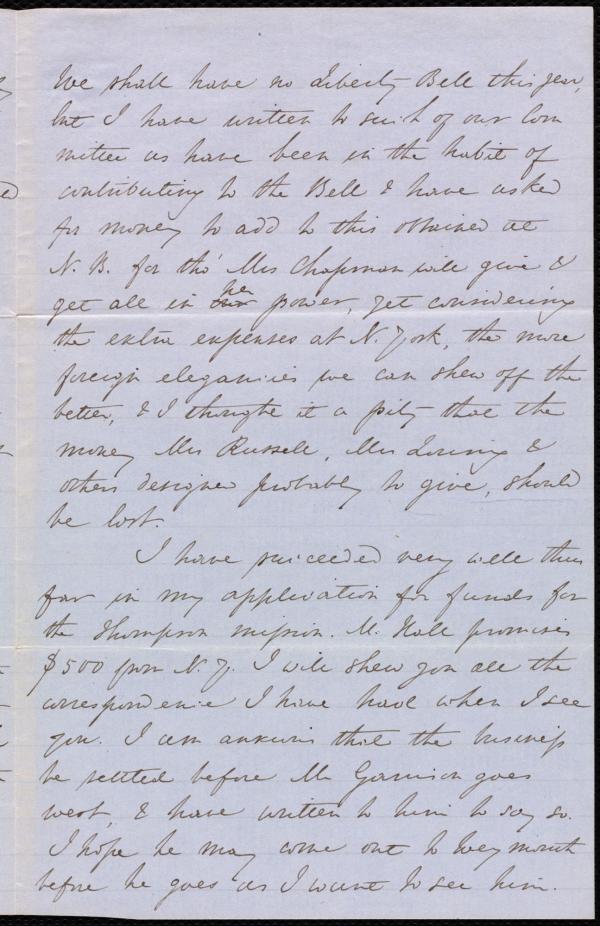 We shall have no Liberty Bell this year,
but I have written to such of our Com
mittee as have been in the habit of
contributing to the Bell & have asked
for money to add to this obtained at
N. B. for tho' Mrs Chapman will give &
get all in her power, yet considering
the extra expenses at N. York, the more
foreign elegancies we can shew off the
better, & I thought it a pity that the
money Mrs Russell, Mrs Loring &
others designed probably to give, should
be lost.
I have succeeded very well thus
far in my application for funds for
the Thompson mission. M. Hall promises
$500 from N. Y. I will shew you all the
correspondence I have had when I see
you. I am anxious that the business
be settled before Mr Garrison goes
west, & have written to him to say so.
I hope he may come out to Weymouth
before he goes as I want to see him.